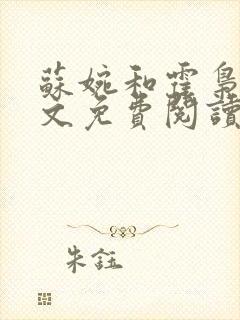 蘇婉和霆梟
文免費閱讀
朱鈺